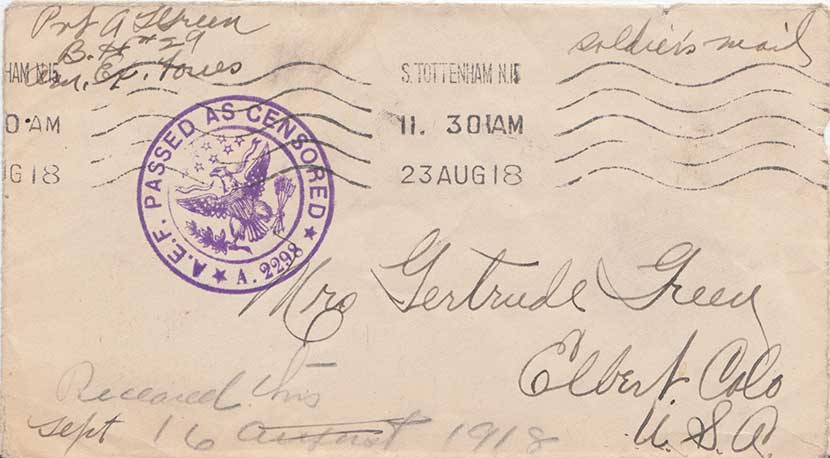 Pvt A L Green
B. H # 29
Am. Ex. Forces
soldier's mail
HAM N.15
0 AM
UG 18
S. TOTTENHAM N.15
11. 30 AM
23 AUG 18
A.E.F. PASSED AS CENSORED
A. 2298
Mrs Gertrude Green
Elbert Colo
U. S. A.
Received this
Sept 16 August 1918